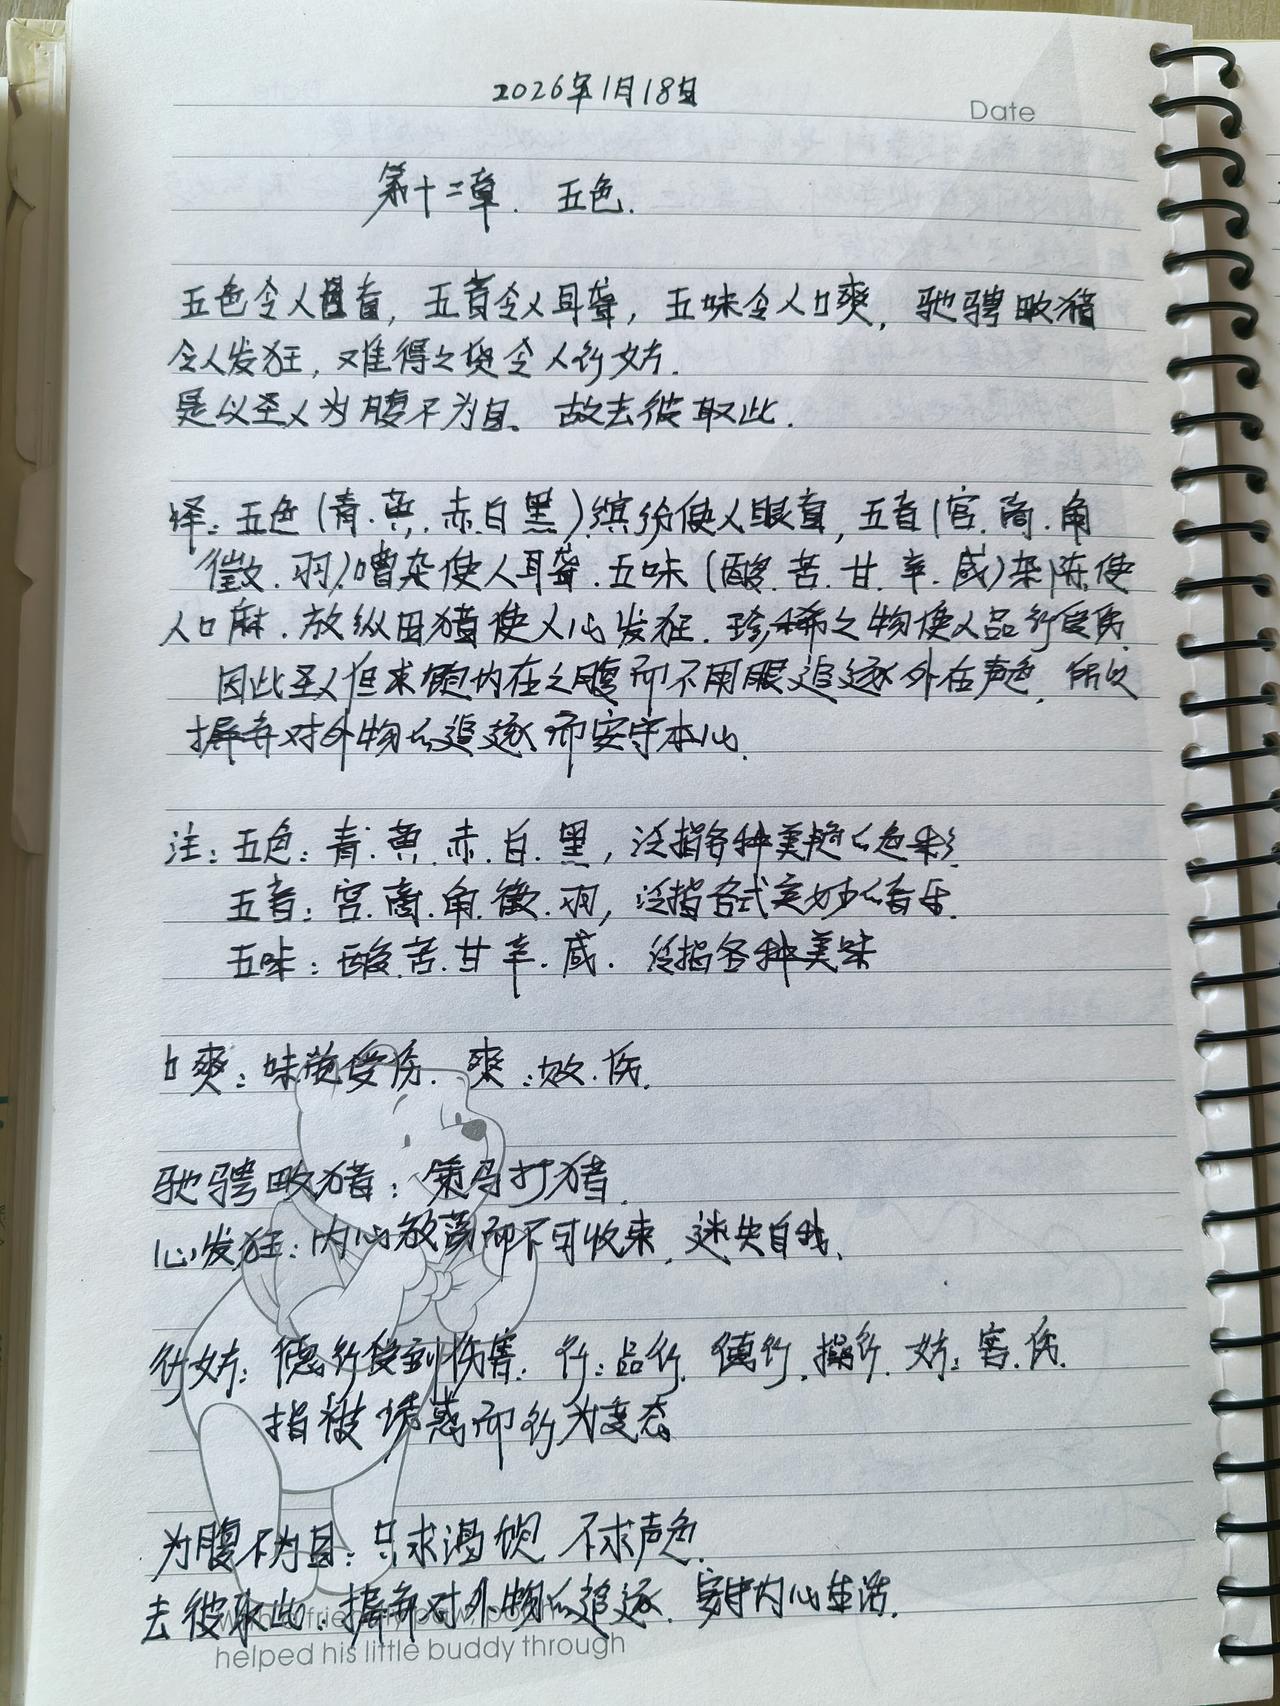 2026年1月18日
Date
第十二章. 五色.
五色令人盲, 五音令人耳聋, 五味令人口爽, 驰骋畋猎
令人发狂, 难得之货令人行妨.
是以圣人为腹不为目、故去彼取此.
译: 五色(青.黄.赤.白黑)缤纷使人眼盲, 五音(宫.商.角
徵.羽)嘈杂使人耳聋.五味(酸.苦.甘.辛.咸)杂陈使
人口麻.放纵田猎使人心发狂.珍稀之物使人品行
因此圣人但求饱内在之腹而不用眼追逐外在声色, 所以
摒弃对外物的追逐而安守本心.
注: 五色: 青.黄.赤.白.黑, 泛指各种美艳的色彩
五音: 宫.商.角.徵.羽, 泛指各式美妙的音乐.
五味: 酸.苦.甘.辛.咸. 泛指各种美味
口爽: 味觉受伤. 爽: 败.伤.
驰骋畋猎: 乘马打猎.
心发狂: 内心放荡而不可收束, 迷失自我.
行妨: 德行受到伤害. 行: 品行. 德行.操行. 妨: 害.伤.
指被诱惑而行为变态
为腹不为目: 只求温饱 不求声色.
去彼取此. 摒弃对外物的追逐. 安守内心生活.
helped his little buddy through